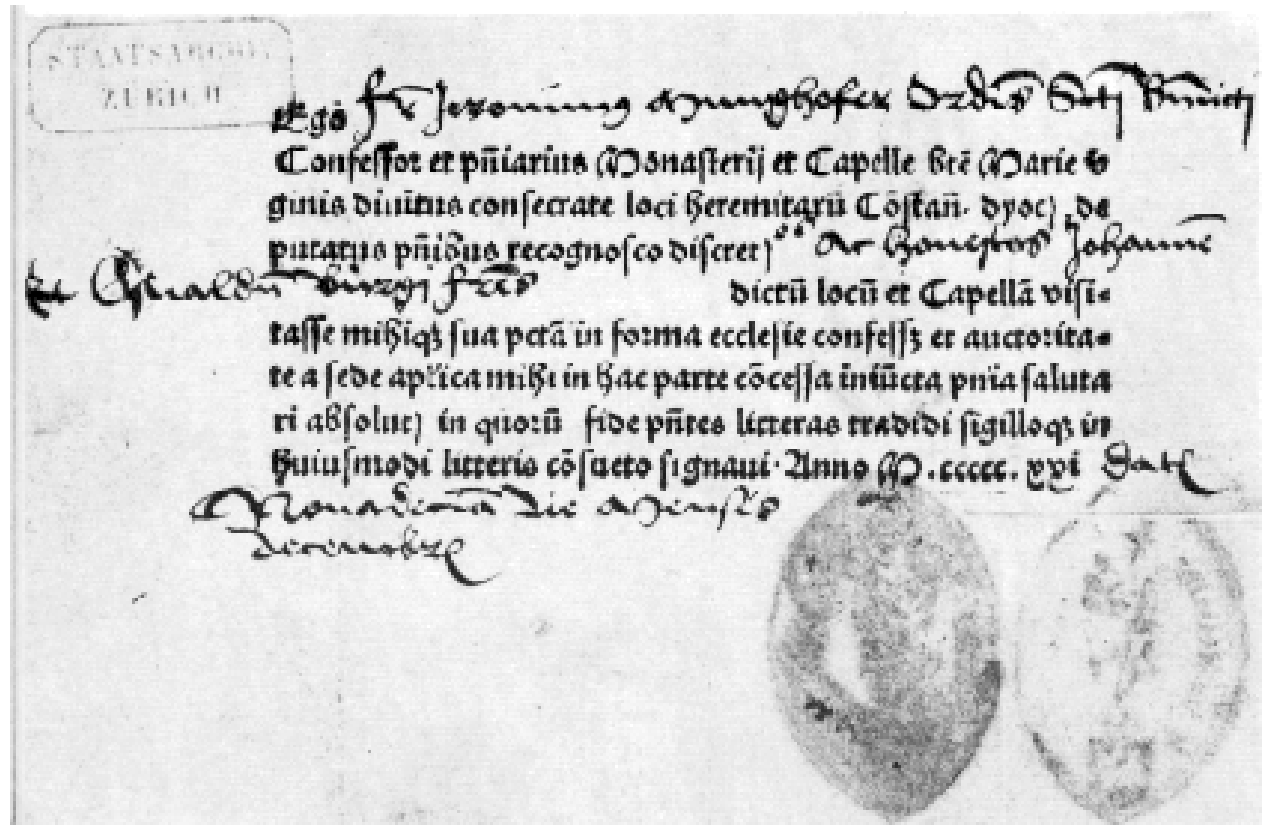 STAATSARCHIV
ZÜRICH
Ego fr̄ Jeronimus Munghofer Ordīs Sctj Bn̄dictj
Confessor et pn̄iarius Monasterij et Capelle btē Marie v
ginis diuītus consecrate loci heremitarū Cōstan̄. dyoc) de
putatus pn̄ibus recognosco discret)os ac honestos Johannē
et Oswaldū burgj frēs dictū locū et Capellā visi-
tasse mihiqꝫ sua pctā in forma ecclesie confessꝫ et auctorita-
te a sede aplica mihi in hac parte cōcessa iniūcta pnia saluta
ri absolut) in quorū fide pn̄tes litteras tradidi sigilloqꝫ in
huiusmodi litteris cōsueto signaui. Anno M.ccccc.xxi Dat
Nonadecima die Mensis
decembr